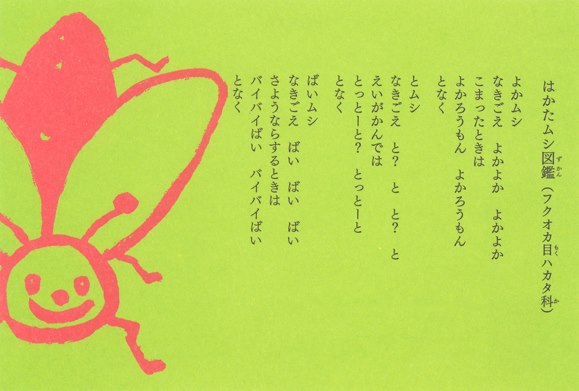 はかたムシ図鑑(フクオカ目ハカタ科)
ずかん
もく
か
よかムシ
なきごえ　よかよか　よかよか
こまったときは
よかろうもん　よかろうもん
となく
とムシ
なきごえ　と?　と　と?　と
えいがかんでは
とっとーと?　とっとーと
となく
ばいムシ
なきごえ　ばい　ばい　ばい
さようならするときは
バイバイばい　バイバイばい
となく